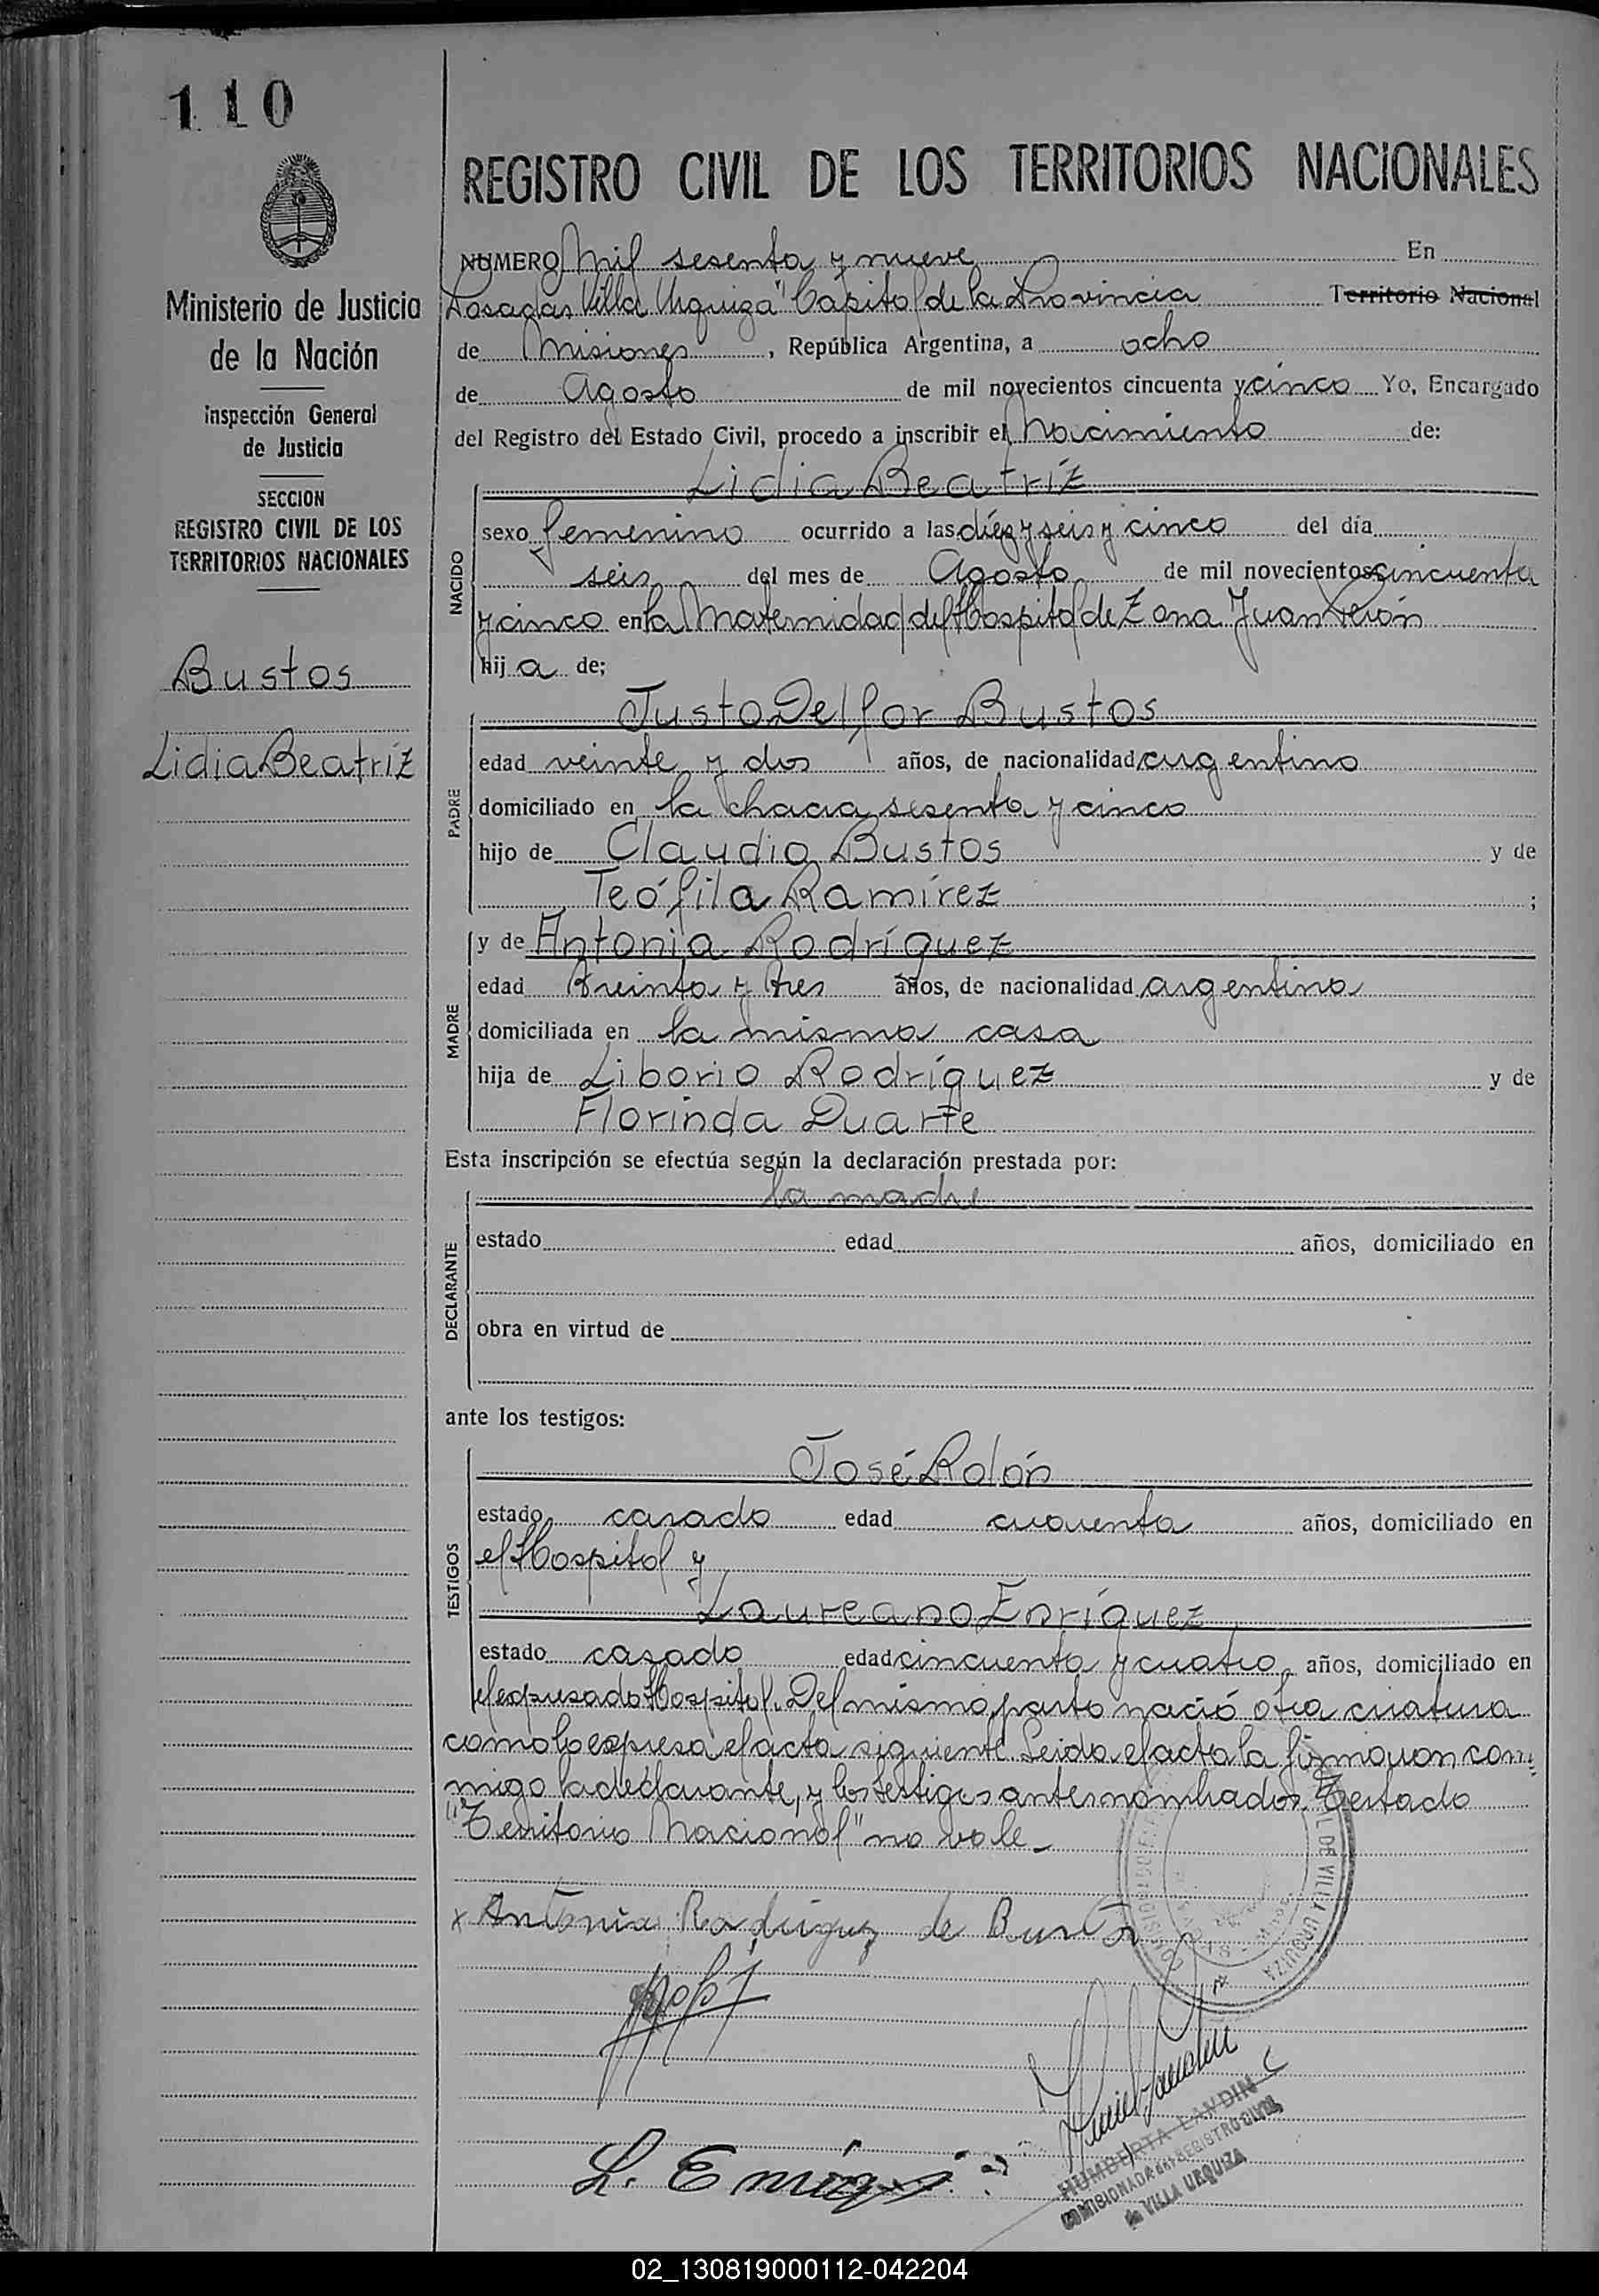 110
REGISTRO CIVIL DE LOS TERRITORIOS NACIONALES
Ministerio de Justicia
de la Nación
Inspección General
de Justicia
SECCION
REGISTRO CIVIL DE LOS
TERRITORIOS NACIONALES
Bustos
Lidia Beatríz
NUMERO Mil sesenta y nueve En
Posadas Villa Urquiza" Capital de la Provincia Territorio Nacional
de Misiones, República Argentina, a ocho
de Agosto de mil novecientos cincuenta y cinco Yo, Encargado
del Registro del Estado Civil, procedo a inscribir el Nacimiento de:
Lidia Beatríz
NACIDO
sexo femenino ocurrido a las diez y seis y cinco del día
seis del mes de Agosto de mil novecientos cincuenta
y cinco en la Maternidad del Hospital de Zona Juan Perón
hija de;
PADRE
Justo Delfor Bustos
edad veinte y dos años, de nacionalidad argentino
domiciliado en la chacra sesenta y cinco
hijo de Claudio Bustos y de
Teófila Ramírez ;
MADRE
y de Antonia Rodríguez
edad treinta y tres años, de nacionalidad argentina
domiciliada en la misma casa
hija de Liborio Rodríguez y de
Florinda Duarte
Esta inscripción se efectúa según la declaración prestada por:
DECLARANTE
la madre
estado edad años, domiciliado en
obra en virtud de
ante los testigos:
TESTIGOS
José Rolón
estado casado edad cuarenta años, domiciliado en
el Hospital y
Laureano Enríquez
estado casado edad cincuenta y cuatro años, domiciliado en
el expresado Hospital. Del mismo parto nació otra criatura
como lo expresa el acta siguiente. Leida el acta la firmaron con-
migo la declarante, y los testigos antes nombrados. Testado
"Territorio Nacional" no vale
x Antonia Rodriguez de Bustos
DE VILLA URQUIZA
L. Enriquez
HUMBERTA LANDIN
COMISIONADA DEL REGISTRO CIVIL
de VILLA URQUIZA
02_130819000112-042204